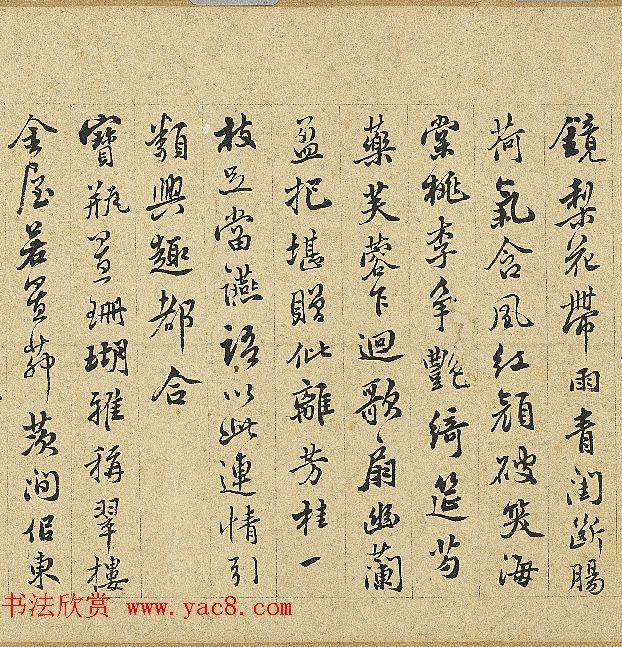 鏡梨花帶雨青閨斷腸
荷氣含風紅顏破笑海
棠桃李爭艷綺筵芍
藥芙蓉乍迴歌扇幽蘭
盈把堪贈仳離芳桂一
枝足當讌語以此連情引
類興趣都合
寶瓶置珊瑚雅稱翠樓
金屋若置茆茨澗東
书法欣赏 www.yac8.com